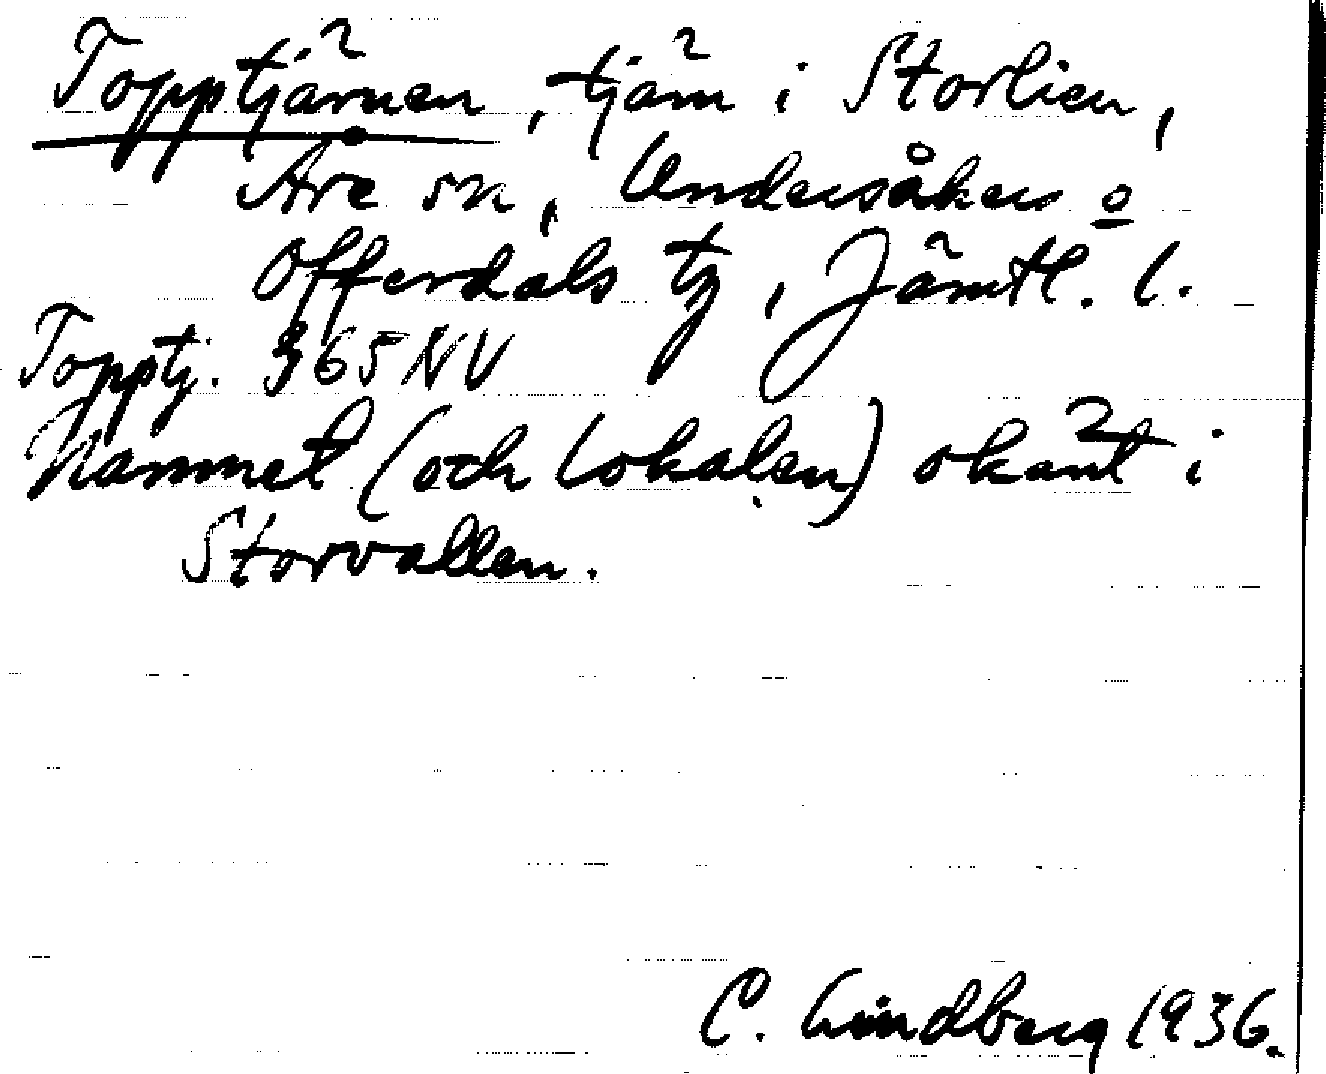 Topptjärnen, tjärn i Storlien,
Åre sn, Undersåkers o
Offerdals tg, Jämtl. l.
Topptj. 365 NV
Namnet (och lokalen) okänt i
Storvallen.
C. Lindberg 1936.